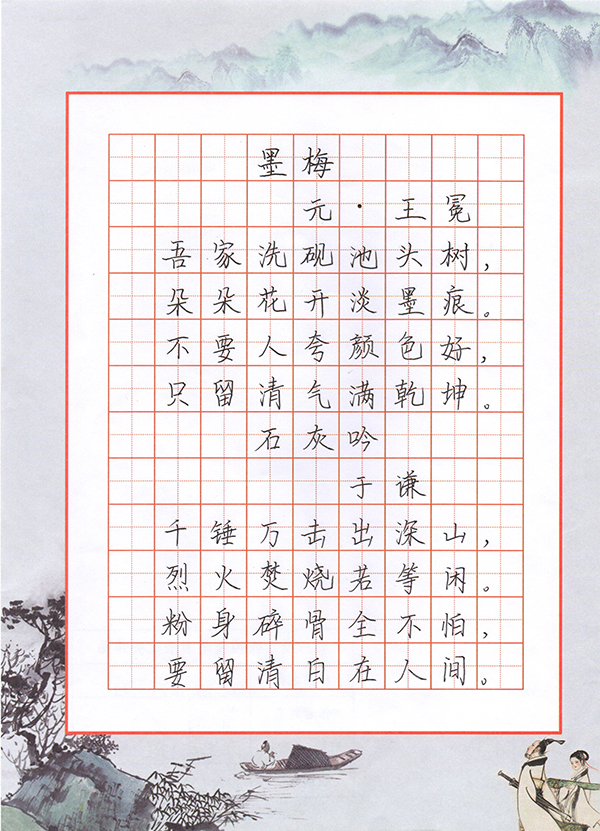 墨梅
元·王冕
吾家洗砚池头树，
朵朵花开淡墨痕。
不要人夸颜色好，
只留清气满乾坤。
石灰吟
于谦
千锤万击出深山，
烈火焚烧若等闲。
粉身碎骨全不怕，
要留清白在人间。